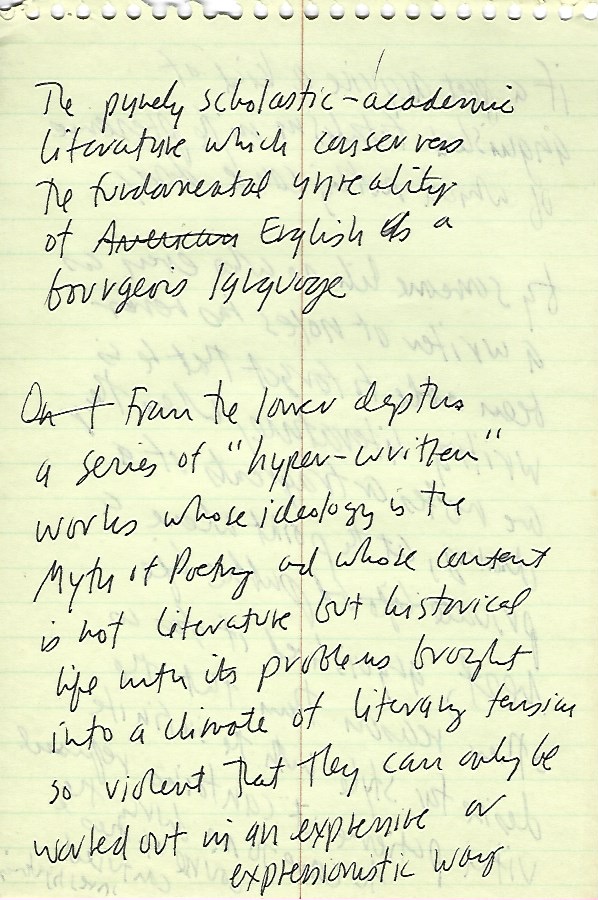 The purely scholastic-academic
literature which conserves
the fundamental unreality
of American English as a
bourgeois language
Out From the lower depths
a series of "hyper-written"
works whose ideology is the
Myth of Poetry and whose content
is not literature but historical
life with its problems brought
into a climate of literary tension
so violent that they can only be
worked out in an expressive or
expressionistic way